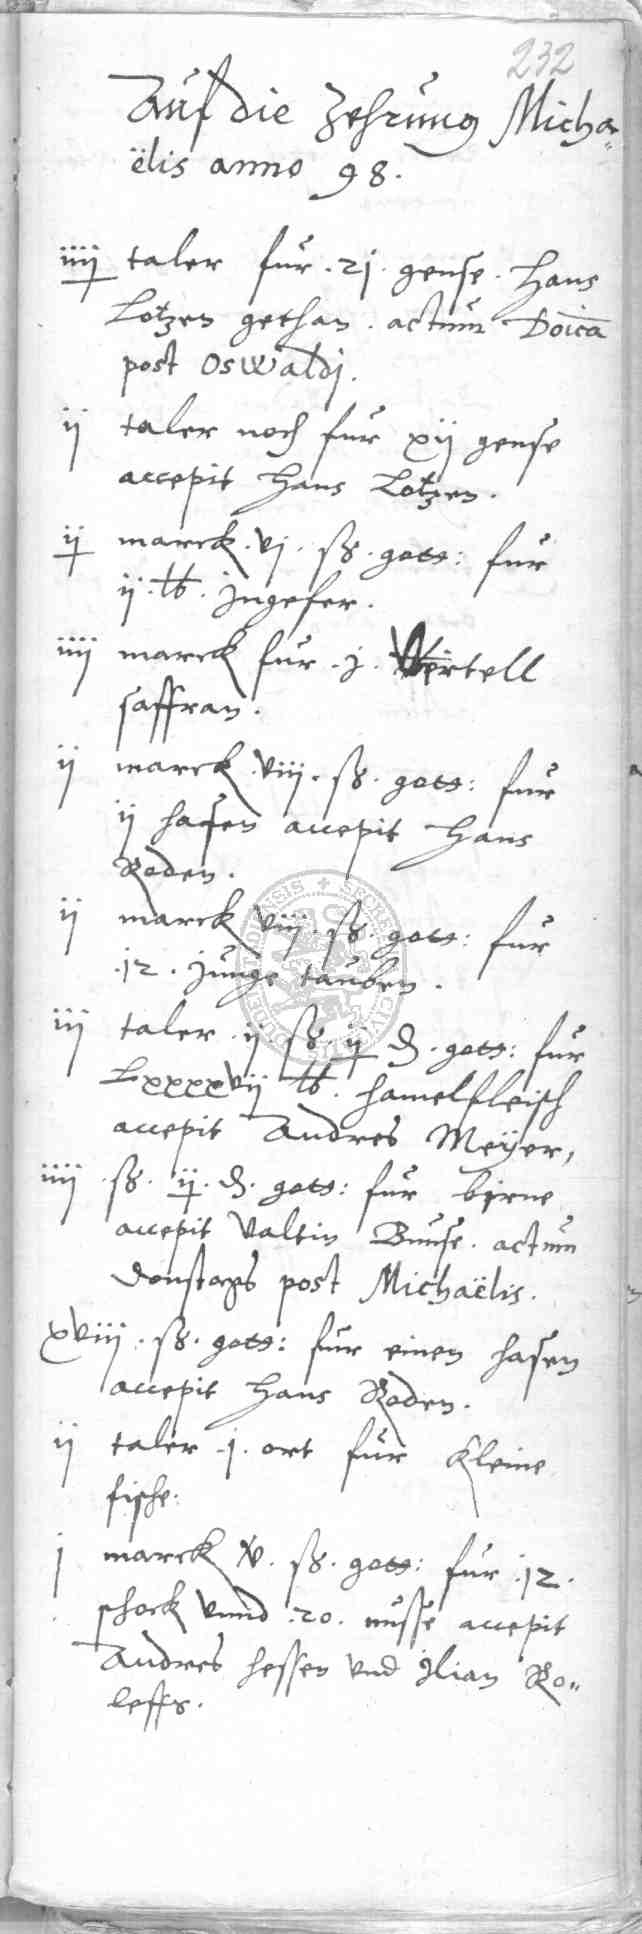 232
Auf die Zehrung Micha=
ëlis anno 98.
iiij taler fur .21. gense. Hans
Lotzen gethan. actum Doi̅ca̅
post Oswaldj.
ij taler noch fur xij gense
accepit Hans Lotzen.
ij marck .vj. ß. gots: fur
ij. lb. Jngefer.
iiij marck fur .j. Virtell
saffran.
ij marck .viij. ß. gots: fur
ij hasen accepit Hans
Roden.
ij marck viij. ß. gots: fur
.12. junge tauben.
iij taler .ij. ß. ij d. gots: fur
Lxxxxvij lb. hamelfleisch
accepit Andres Meÿer,
iiij .ß. ij. d. gots: fur birne
accepit Valtin Bunse. actum
Donstags post Michaëlis.
xviij. ß. gots: fur einen hasen
accepit Hans Roden.
ij taler .j. ort fur kleine
fische:
j marck v. ß. gots: fur .12.
schock vnnd .20. nusse accepit
Andres Hessen vnd Jlian Ro=
leffs.
SECRETUM CIVITATIS